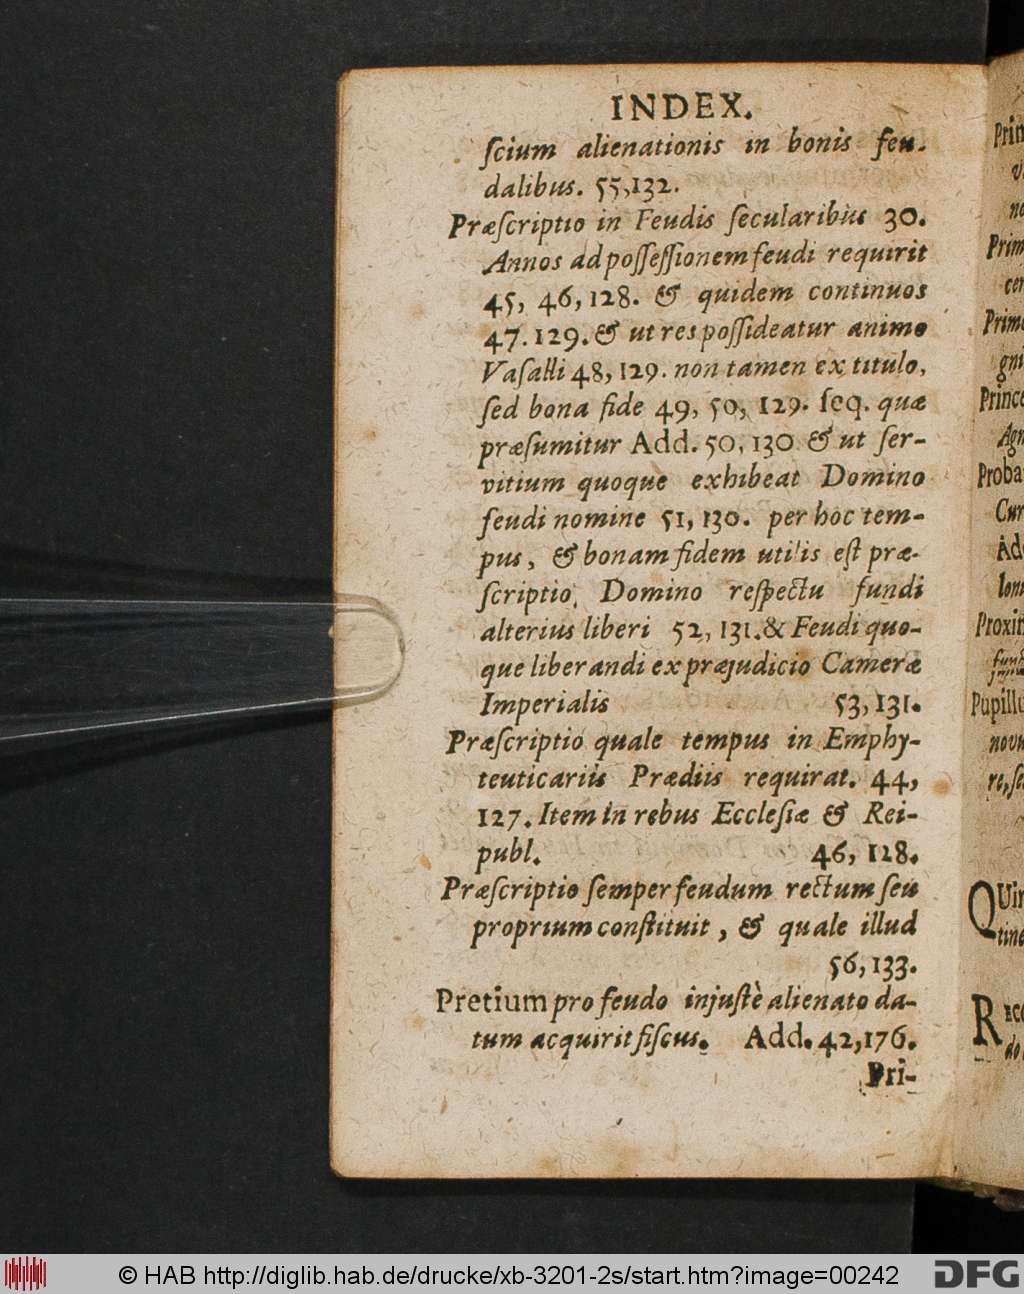 INDEX.
ſcium alienationis in bonis feu-
dalibus. 55,132.
Præſcriptio in Feudis ſecularibus 30.
Annos ad poſſeſſionem feudi requirit
45, 46, 128. & quidem continuos
47. 129. & ut res poſſideatur animo
Vaſalli 48, 129. non tamen ex titulo,
ſed bona fide 49, 50, 129. ſeq. quæ
præſumitur Add. 50, 130 & ut ſer-
vitium quoque exhibeat Domino
feudi nomine 51, 130. per hoc tem-
pus, & bonam fidem utilis eſt præ-
ſcriptio, Domino reſpectu fundi
alterius liberi 52, 131. & Feudi quo-
que liberandi ex præjudicio Cameræ
Imperialis 53, 131.
Præſcriptio quale tempus in Emphy-
teuticariis Prædiis requirat. 44,
127. Item in rebus Eccleſiæ & Rei-
publ. 46, 128.
Præſcriptio ſemper feudum rectum ſeu
proprium conſtituit, & quale illud
56, 133.
Pretium pro feudo injuſtè alienato da-
tum acquirit fiſcus. Add. 42, 176.
Pri-
Prin
Prim
cer
Prim
gni
Prince
Agn
Proba
Cur
Ad
Proxin
Pupillu
novu
QUin
tine
REC
do
© HAB http://diglib.hab.de/drucke/xb-3201-2s/start.htm?image=00242
DFG